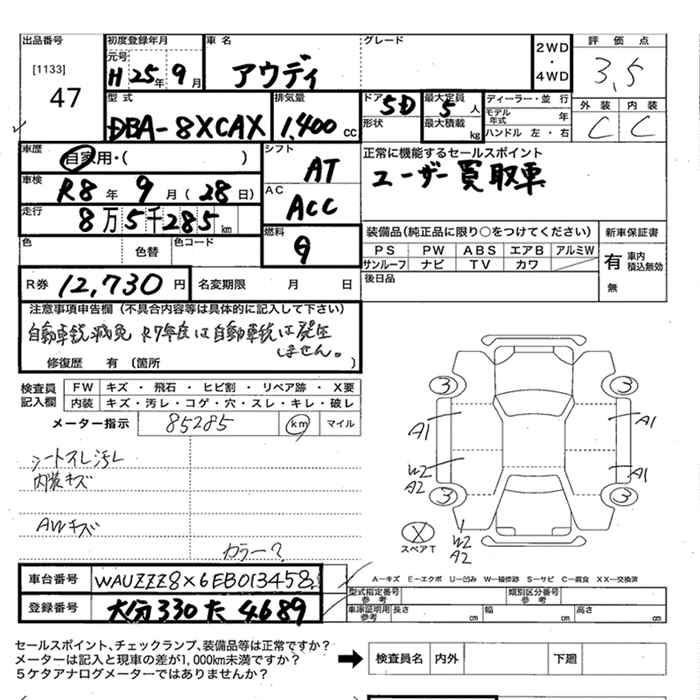 出品番号 初度登録年月 車名 グレード 2WD・4WD 評価点
[1133] 元号 H 25年 9月 アウディ 3.5
47 型式 排気量 ドア 5D 最大定員 5人 ディーラー・並行 外装 内装
DBA-8XCAX 1,400cc 形状 最大積載 kg モデル年式 年 C C
ハンドル 左・右
車歴 自家用・( ) シフト AT 正常に機能するセールスポイント
車検 R8年 9月(28日) AC ACC ユーザー買取車
走行 8万5千285km
色 色替 色コード 燃料 G 装備品(純正品に限り○をつけてください) 新車保証書
PS PW ABS エアB アルミW 有 車内積込無効
サンルーフ ナビ TV カワ
R券 12,730円 名変期限 月 日 後日品 無
注意事項申告欄(不具合内容等は具体的に記入して下さい)
自動車税減免 R7年度は自動車税は発生
しません。
修復歴 有(箇所 )
検査員記入欄 FW キズ・飛石・ヒビ割・リペア跡・X要
内装 キズ・汚レ・コゲ・穴・スレ・キレ・破レ
メーター指示 85285 km マイル
3 3
A1 A1
シートスレ汚レ
内装キズ
W2 A2 A1
3 3
AWキズ
X スペアT W2 A2
カラー?
車台番号 WAUZZZ8X6EB013458
A-キズ E-エクボ U-凹み W-補修跡 S-サビ C-腐食 XX-交換済
型式指定番号参考 類別区分番号参考
登録番号 大分 330 た 4689
車庫証明用参考 長さ cm 幅 cm 高さ cm
セールスポイント、チェックランプ、装備品等は正常ですか?
メーターは記入と現車の差が1,000km未満ですか?
5ケタアナログメーターではありませんか?
検査員名 内外 下廻